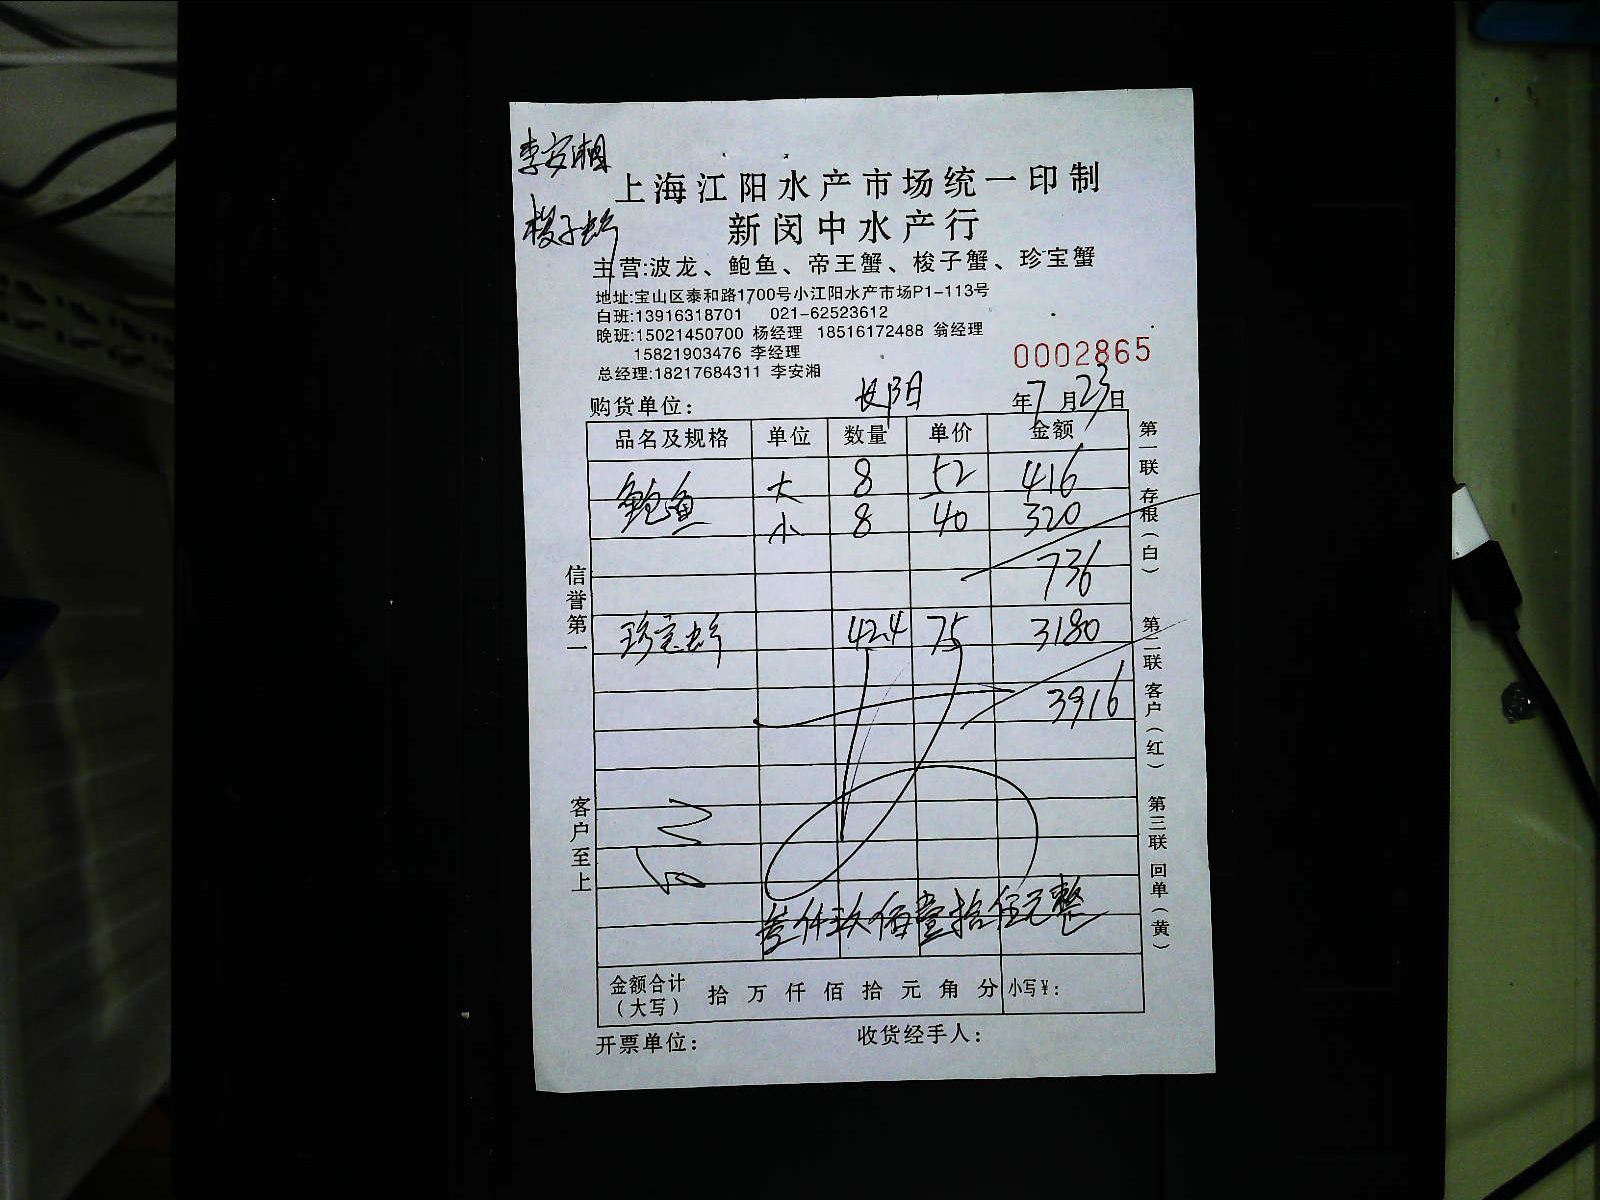 李安湘
梭子蚧
上海江阳水产市场统一印制
新闵中水产行
主营:波龙、鲍鱼、帝王蟹、梭子蟹、珍宝蟹
地址:宝山区泰和路1700号小江阳水产市场P1-113号
白班:13916318701 021-62523612
晚班:15021450700 杨经理 18516172488 翁经理
15821903476 李经理
总经理:18217684311 李安湘
0002865
购货单位: 长阳 年7月23日
品名及规格 单位 数量 单价 金额
鲍鱼 大 8 52 416
小 8 40 320
736
珍宝蚧 42.4 75 3180
3916
叁仟玖佰壹拾 元整
金额合计(大写) 拾 万 仟 佰 拾 元 角 分 小写¥:
开票单位: 收货经手人:
信誉第一
客户至上
第一联 存根(白)
第二联 客户(红)
第三联 回单(黄)